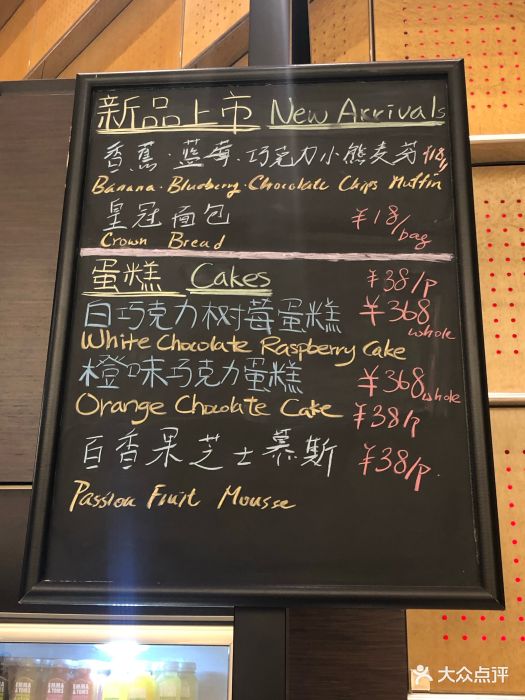 新品上市 New Arrivals
香蕉·蓝莓·巧克力小熊麦芬 ¥18/
Banana·Blueberry·Chocolate Chips Muffin
皇冠面包 ¥18/bag
Crown Bread
蛋糕 Cakes ¥38/p
白巧克力树莓蛋糕 ¥368 whole
White Chocolate Raspberry Cake
橙味巧克力蛋糕 ¥368 whole
Orange Chocolate Cake ¥38/p
百香果芝士慕斯 ¥38/p.
Passion Fruit Mousse
EMMA & TOM'S
大众点评